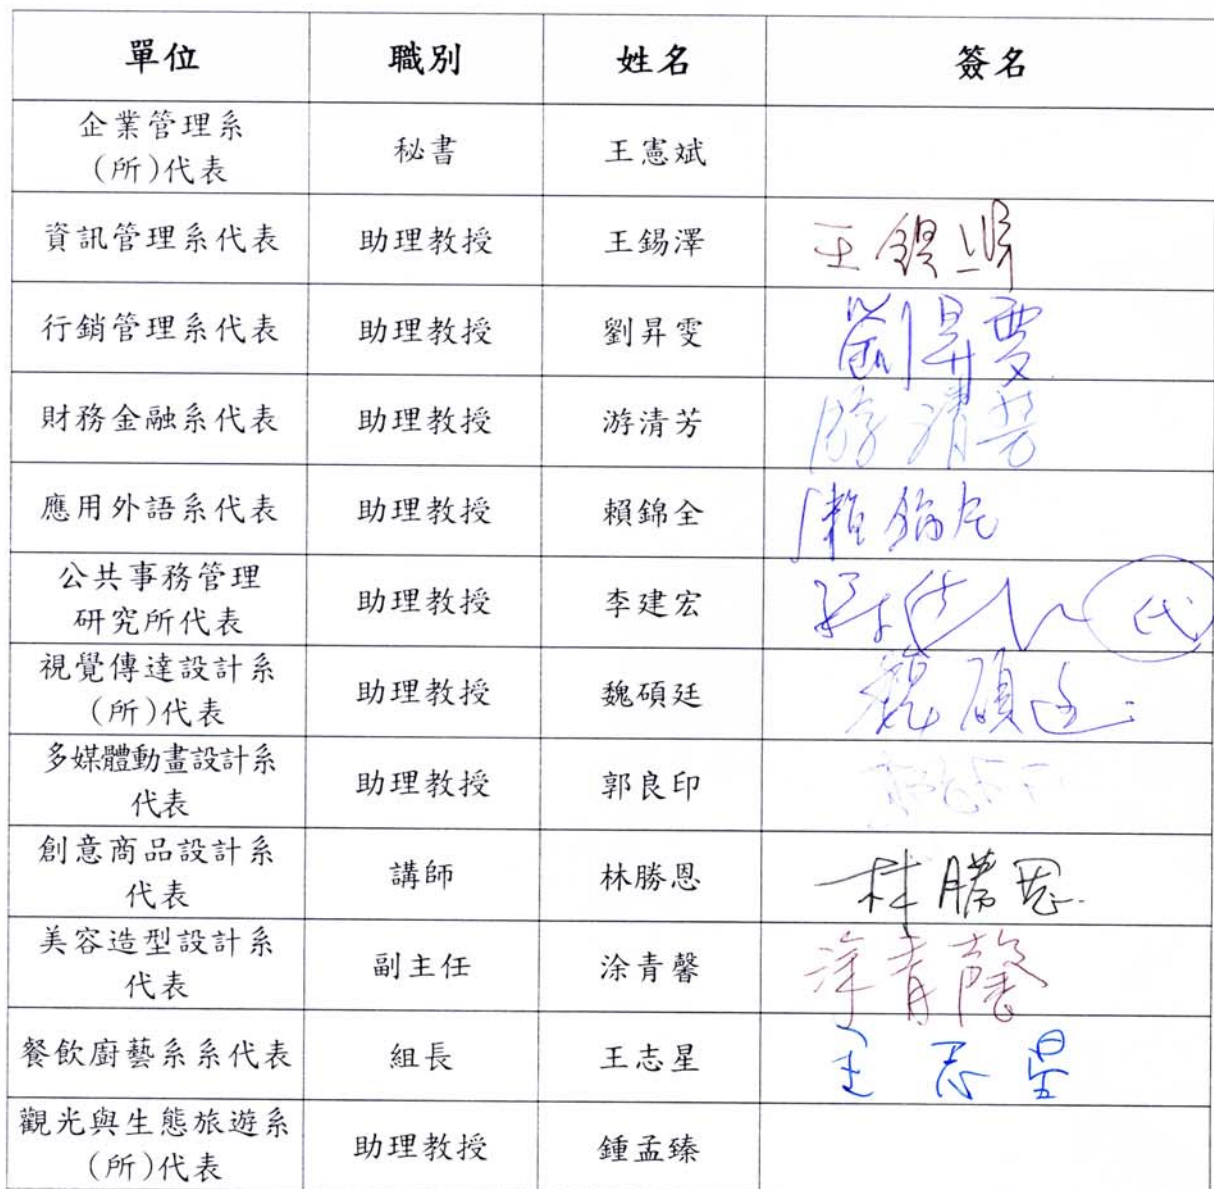 單位 職別 姓名 簽名
企業管理系
(所)代表 秘書 王憲斌
資訊管理系代表 助理教授 王錫澤 王錫澤
行銷管理系代表 助理教授 劉昇雯 劉昇雯
財務金融系代表 助理教授 游清芳 游清芳
應用外語系代表 助理教授 賴錦全 賴錦全
公共事務管理
研究所代表 助理教授 李建宏 代
視覺傳達設計系
(所)代表 助理教授 魏碩廷 魏碩廷
多媒體動畫設計系
代表 助理教授 郭良印
創意商品設計系
代表 講師 林勝恩 林勝恩
美容造型設計系
代表 副主任 涂青馨 涂青馨
餐飲廚藝系系代表 組長 王志星 王志星
觀光與生態旅遊系
(所)代表 助理教授 鍾孟臻